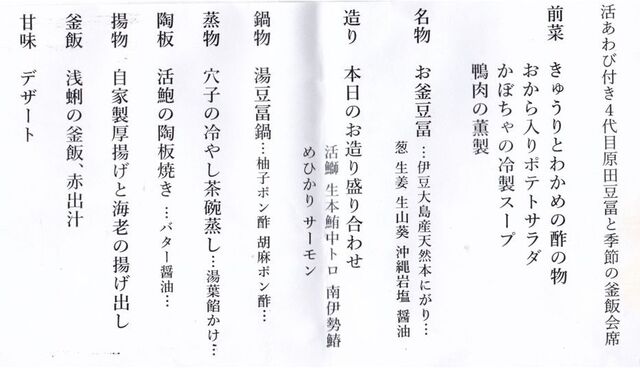 活あわび付き4代目原田豆冨と季節の釜飯会席
前菜 きゅうりとわかめの酢の物
おから入りポテトサラダ
かぼちゃの冷製スープ
鴨肉の薫製
名物 お釜豆冨…伊豆大島産天然本にがり…
葱 生姜 生山葵 沖縄岩塩 醤油
造り 本日のお造り盛り合わせ
活鰤 生本鮪中トロ 南伊勢鰆
めひかり サーモン
鍋物 湯豆冨鍋…柚子ポン酢 胡麻ポン酢…
蒸物 穴子の冷やし茶碗蒸し…湯葉餡かけ…
陶板 活鮑の陶板焼き…バター醤油…
揚物 自家製厚揚げと海老の揚げ出し
釜飯 浅蜊の釜飯、赤出汁
甘味 デザート